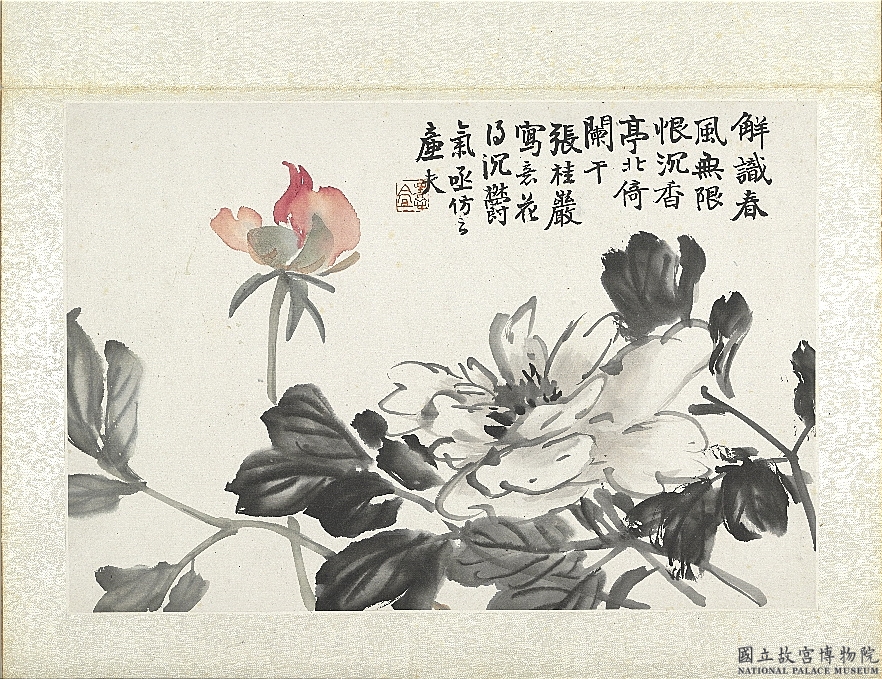 解識春
風無限
恨沉香
亭北倚
闌干
張桂巖
寫意花
得沉鬱
氣亟仿之
廬夫
國立故宮博物院
NATIONAL PALACE MUSEUM